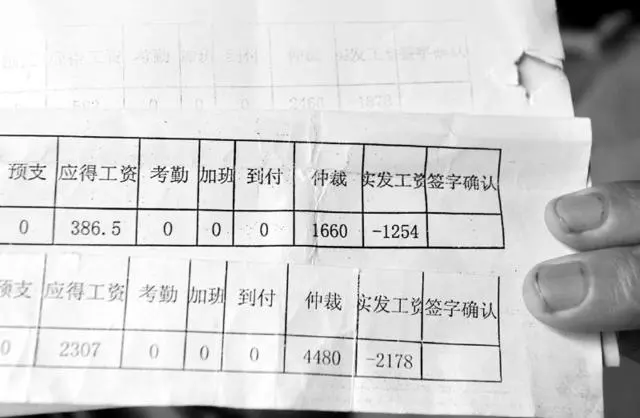 应得工资 考勤 加班 到付 仲裁 实发工资 签字确认
582 0 0 0 2460 -1878
预支 应得工资 考勤 加班 到付 仲裁 实发工资 签字确认
0 386.5 0 0 0 1660 -1254
预支 应得工资 考勤 加班 到付 仲裁 实发工资 签字确认
0 2307 0 0 0 4480 -2178